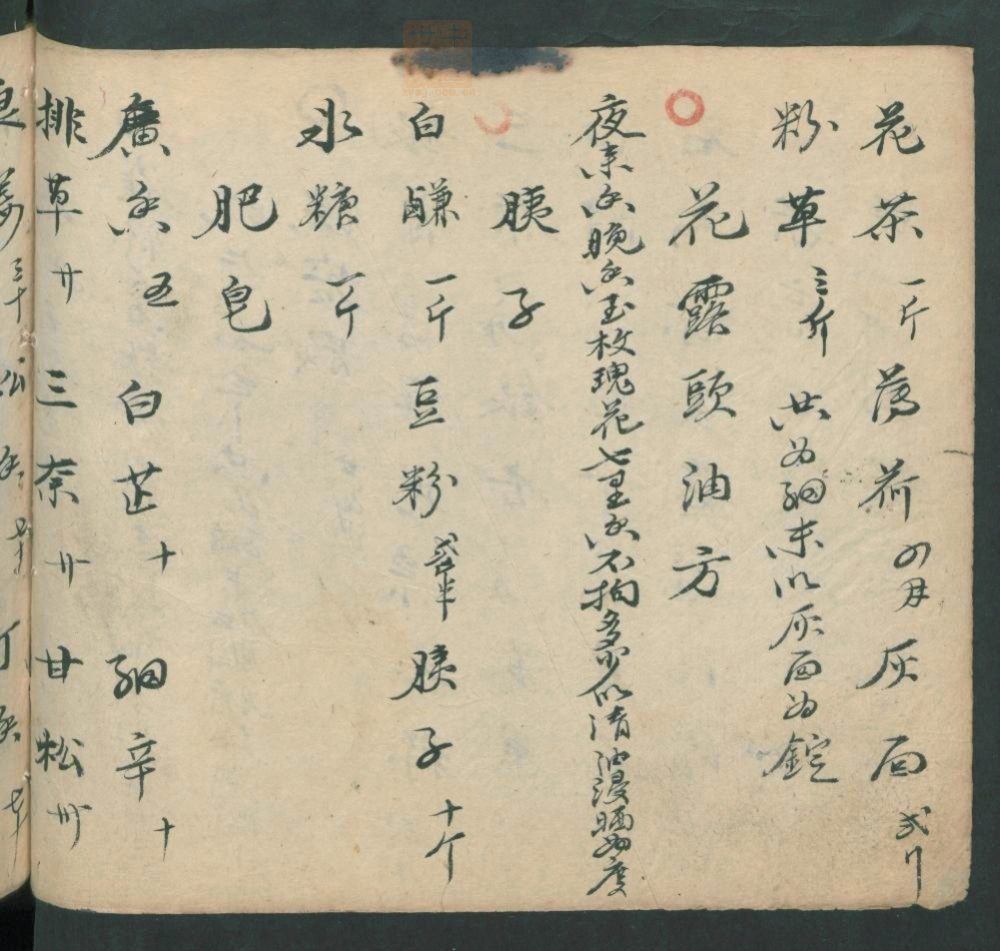 花茶一斤薄荷四月灰面弍斤
粉草三斤 共为细末以灰面为錠
花露頭油方
夜来香晚香玉枚瑰花七里香不拘多少以清油浸晒如度
胰子
白鹻一斤豆粉 胰子十斤
氷糖一斤
肥皂
廣香五 白芷十 細辛十
排草廾 三奈廾 甘松卅
良姜三十 公 丁香